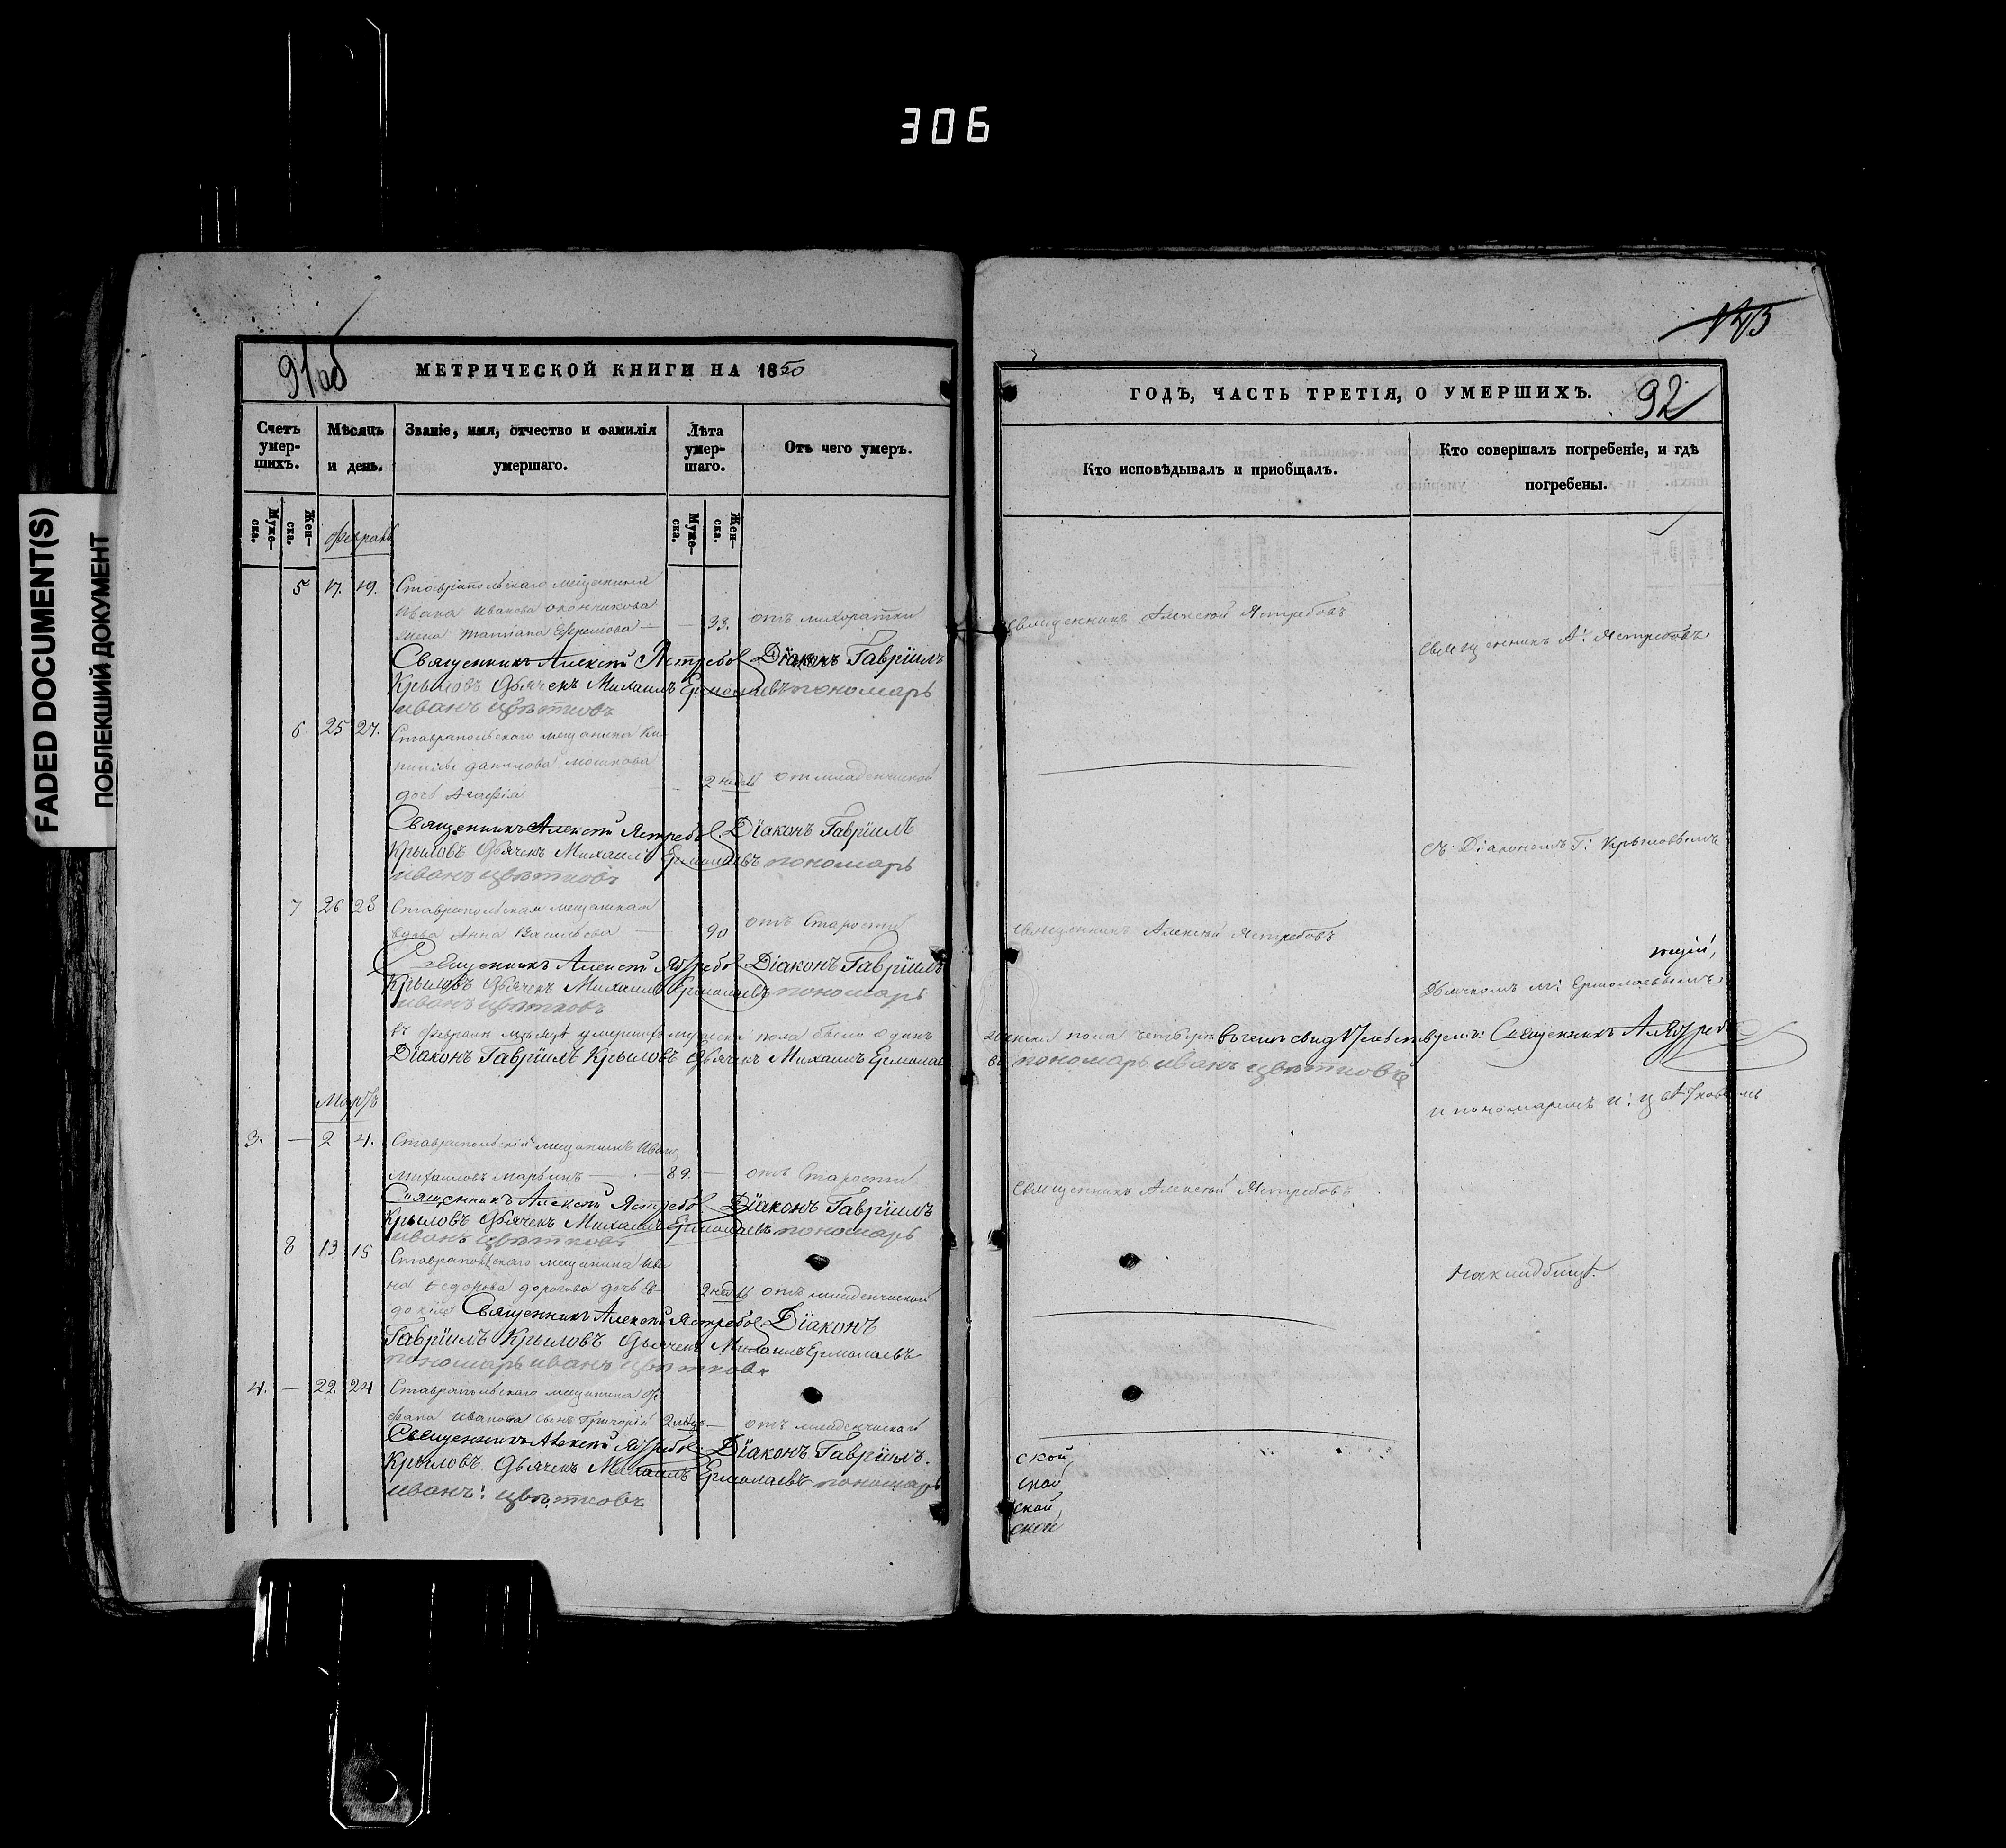 306
FADED DOCUMENT(S)
ПОБЛЕКШИЙ ДОКУМЕНТ
91об
МЕТРИЧЕСКОЙ КНИГИ НА 1850
Счетъ умер-шихъ.
Мѣсяцъ и день.
Званіе, имя, отчество и фамилія умершаго.
Лѣта умер-шаго.
Отъ чего умеръ.
Муже-ска.
Жен-ска.
Муже-ска.
Жен-ска.
Февраль
5 17. 19. Ставропольскаго мещанина
Ивана Иванова
жена Татиана Ефремова — 33. отъ лихоратки
Священникъ Алексій Ястребов Діаконъ Гавріилъ
Крыловъ Дьячекъ Михаилъ Ермолаевъ пономарь
иванъ цвѣтковъ
6 25 27. Ставропольскаго мещанина Ки-
рилы данилова мошкова
дочь Агафія 2 недель от младенческой
Священникъ Алексій Ястребов. Діаконъ Гавріилъ
Крыловъ Дьячекъ Михаилъ Ермолаевъ пономарь
иванъ цвѣтковъ
7 26 28 Ставропольская мещанская
вдова Анна Васильева — 90 отъ Старости
Священникъ Алексій Ястребов Діаконъ Гавріилъ
Крыловъ Дьячекъ Михаилъ Ермолаевъ пономарь
иванъ цвѣтковъ
въ Феврали мѣсяцѣ умершихъ мужеска пола было одинъ
Діаконъ Гавріилъ Крыловъ Дьячекъ Михаилъ Ермолае
Мартъ
3. — 2 4. Ставропольскій мещанинъ Иванъ
Михаиловъ Марьинъ — 89. — отъ Старости
Священникъ Алексій Ястребов Діаконъ Гавріилъ
Крыловъ Дьячекъ Михаилъ Ермолаевъ пономарь
иванъ цвѣтковъ
8 13 15 Ставропольскаго мещанина Ива
на Федорова дорогова дочь Ев-
докія 2 недель отъ младенческой
Священникъ Алексій Ястребов. Діаконъ
Гавріилъ Крыловъ Дьячекъ Михаилъ Ермолаевъ
пономарь иванъ цвѣтковъ
4. — 22. 24 Ставропольскаго мещанина
Иванова сынъ Григорій — отъ младенческой
Священникъ Алексій Ястребов. Діаконъ Гавріилъ.
Крыловъ. Дьячекъ Михаилъ Ермолаевъ пономарь
иванъ: цвѣтковъ
ГОДЪ, ЧАСТЬ ТРЕТІЯ, О УМЕРШИХЪ.
92
Кто исповѣдывалъ и приобщалъ.
Кто совершалъ погребеніе, и гдѣ погребены.
Священникъ Алексій Ястребовъ
Священникъ А: Ястребовъ
съ Діакономъ Г: Крыловымъ
Священникъ Алексій Ястребовъ
Дьячкомъ М: Ермолаевымъ
женска пола четыре въ чемъ свидѣтельствуемъ: Священникъ А Ястребов
въ пономарь иванъ цвѣтковъ
и пономаремъ И: Цвѣтковымъ
Священникъ Алексій Ястребовъ
на кладбищѣ.
ской
ской
ской
ской